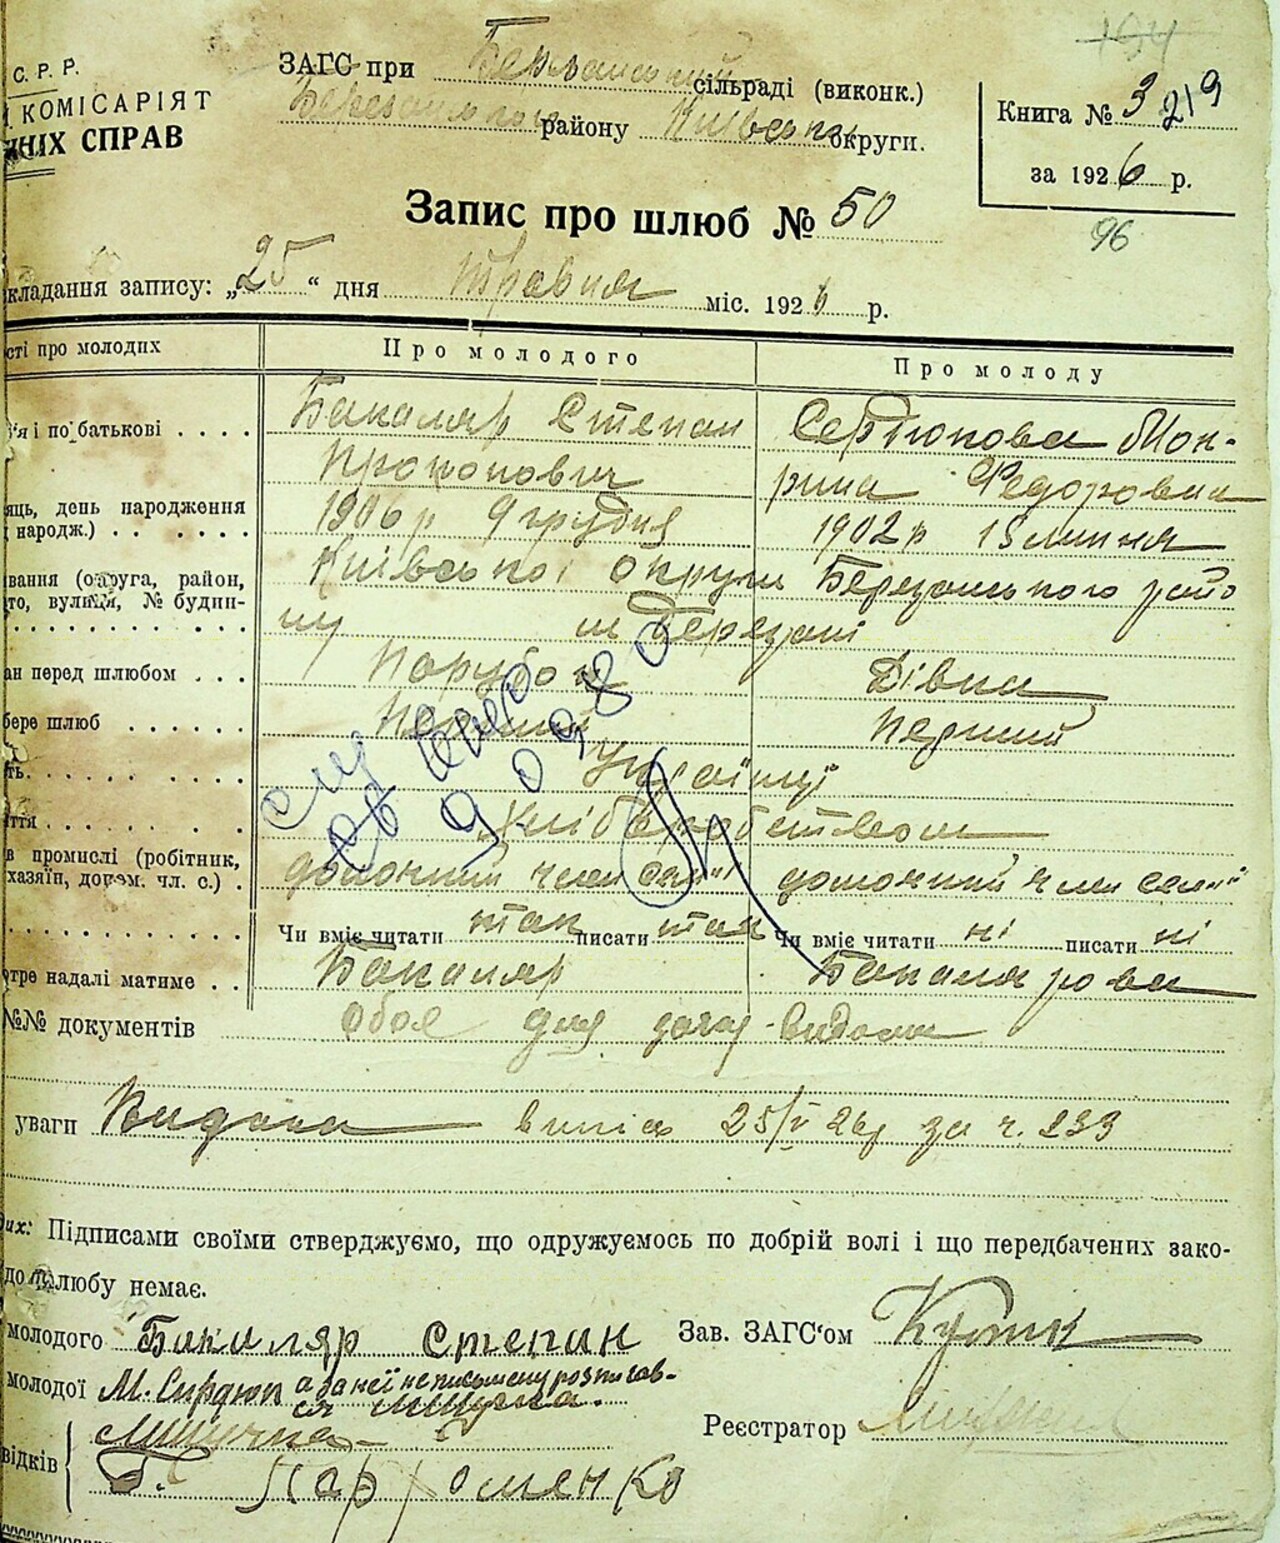 194
С. Р. Р.
КОМІСАРІЯТ
НІХ СПРАВ
ЗАГС при Березанський сільраді (виконк.)
Березанського району Київської округи.
Книга № 3 219
за 1926 р.
96
Запис про шлюб № 50
кладання запису: „25“ дня травня міс. 1926 р.
сті про молодих
Про молодого
Про молоду
я і по батькові
Бакаляр Степан Сердюкова Мок-
Прокопович рина Федоровна
яць, день народження
народж.)
1906 р 9 грудня 1902 р 15 липня
вання (округа, район,
то, вулиця, № будин-
Київської округи Березанського райо
ну м Березані
ан перед шлюбом Парубок Дівка
бере шлюб Перший Перший
ть Українці
ття Хліборобством
в промислі (робітник,
хазяїн, допом. чл. с.)
допомжний член сем'ї допомжний член сем'ї
Чи вміє читати так писати так Чи вміє читати ні писати ні
тре надалі матиме Бакаляр Бакалярова
№№ документів обоє для загсу видома
уваги Видана випись 25/V 26р за ч. 233
их: Підписами своїми стверджуємо, що одружуємось по добрій волі і що передбачених зако-
до шлюбу немає.
молодого Бакиляр Степан Зав. ЗАГС‘ом
молодої М. Сирдюк а за неї неписьмену розписав-
ся
Реєстратор
відків
Пархоменко